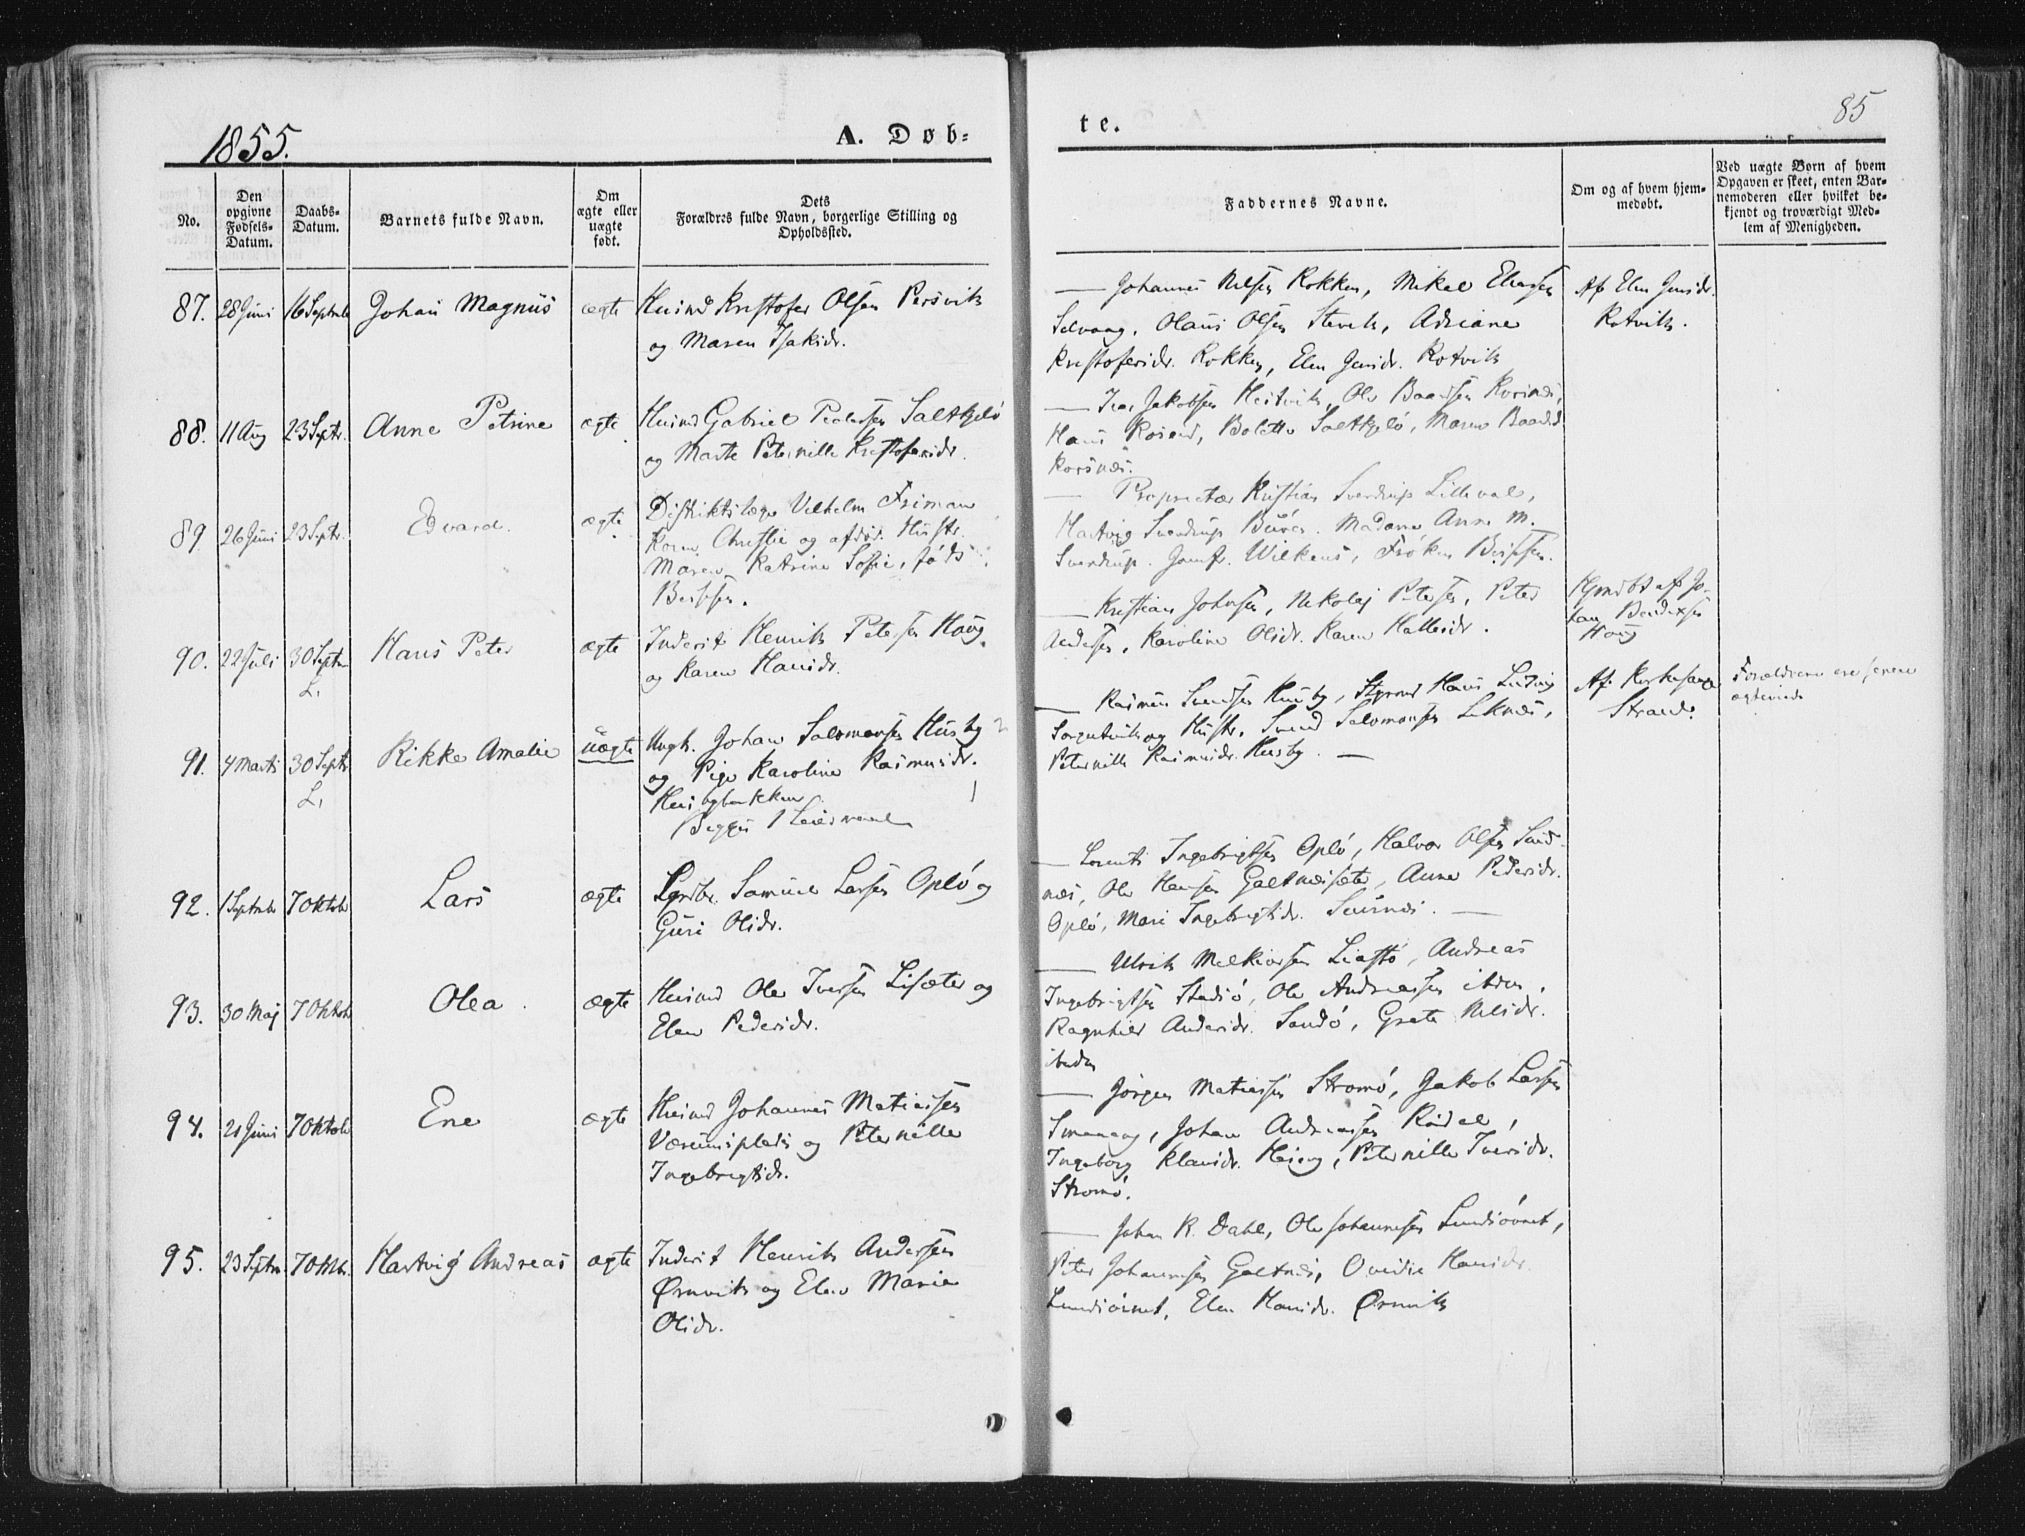 1855.
A. Døb-
te.
85
No.
Den opgivne Fødsels-Datum.
Daabs-Datum.
Barnets fulde Navn.
Om ægte eller uægte født.
Dets
Forældres fulde Navn, borgerlige Stilling og
Opholdssted.
Faddernes Navne.
Om og af hvem hjem-
medøbt.
Ved uægte Børn af hvem
Opgaven er skeet, enten Bar-
nemoderen eller hvilket be-
kjendt og troværdigt Med-
lem af Menigheden.
87. 28 Juni 16 Septmb Johan Magnus ægte Husmd Kristofer Olsen Persvik
og Maren Isaksdr.
Johannes Nelsen Rokken, Mikal Eliasen
Selvaag, Olaus Olsen Stervik, Adriane
Kristofersdr. Rokken, Elen Jensdr. Rotvik
Af Elen Jensdr.
Rotvik.
88. 11 Aug 23 Septr. Anne Petrine ægte Husmd Gabriel Pedersen Saltkjelø
og Marte Peternille Kristofersdr.
Ivar Jakobsen Hestvik, Ole Baardsen Korsnæs,
Hans Rosend, Bolette Saltkjelø, Maren Baardsd
Korsnæs.
89. 26 Juni 23 Septr. Edvard. ægte Distriktslæge Vilhelm Friman
Koren Christie og afdød. Hustr.
Maren Katrine Sofie, født
Beissen.
Proprietær Kristian Sverdrup Lilleval,
Hartvig Sverdrup Buøen. Madame Anne M.
Sverdrup. Jomfr. Wilkens, Frøken Beissen.
90. 22 Juli 30 Septm Hans Peter ægte Inderst Henrik Petersen Houg
L.
og Karen Hansdr.
Kristian Johnsen, Nikolaj Petersen, Peter
Andersen, Karoline Olsdr. Karen Hallesdr.
Hjemdøbt af Jo-
han Bendixsen
Houg
91. 4 Marts 30 Septr. Rikke Amalie uægte Ungk. Johan Salomonsen Husby
L.
og Pige Karoline Rasmusdr.
Husbybakken
Begges 1 Leiermaal
Rasmus Svendsen Husby, Styrmd Hans Ludvig
og Hustr. Svend Salomonsen Leknæs,
Peternille Rasmusdr. Husby. —
Af Kirkesanger
Strand.
Forældrene ere senere
ægteviede
92. 1 Septmbr 7 Oktob Lars ægte Lgrdbr. Samuel Larsen Opløg og
Guri Olsdr.
Lorents Ingebrigtsen Oplø, Halvor Olsen Sand-
næs, Ole Hansen Galtnæsæter, Anne Pedersdr.
Oplø, Mari Ingebrigtsdr. Saursnæs. —
93. 30 Maj 7 Oktob Olea. ægte Husmd Ole Iversen Lisæter og
Elen Pedersdr.
Ulrik Melkiorsen Liastø, Andreas
Ingebrigtsen Stadsø, Ole Andreassen ibdm.
Ragnhild Andersdr. Sandø, Grete Nilsdr.
ibidm
94. 21 Juni 7 Oktob Ene ægte Husmd Johannes Matiassen
Værumsplads og Peternille
Ingebrigtsdr.
Jørgen Matiassen Stromø, Jakob Larsen
Smaavog, Johan Andreassen Rødal,
Ingeborg Klausdr. Heieng, Peternille Iversdr.
Stromø.
95. 23 Septm. 7 Oktbr. Hartvig Andreas ægte Inderst Henrik Andersen
Ørnvik og Elen Marie
Olsdr.
Johan R. Dahl, Ole Johannesen Lundsøvnet,
Peter Johannesen Galtnæs, Ovidie Hansdr.
Lundsøvnet, Elen Hansdr. Ørnvik